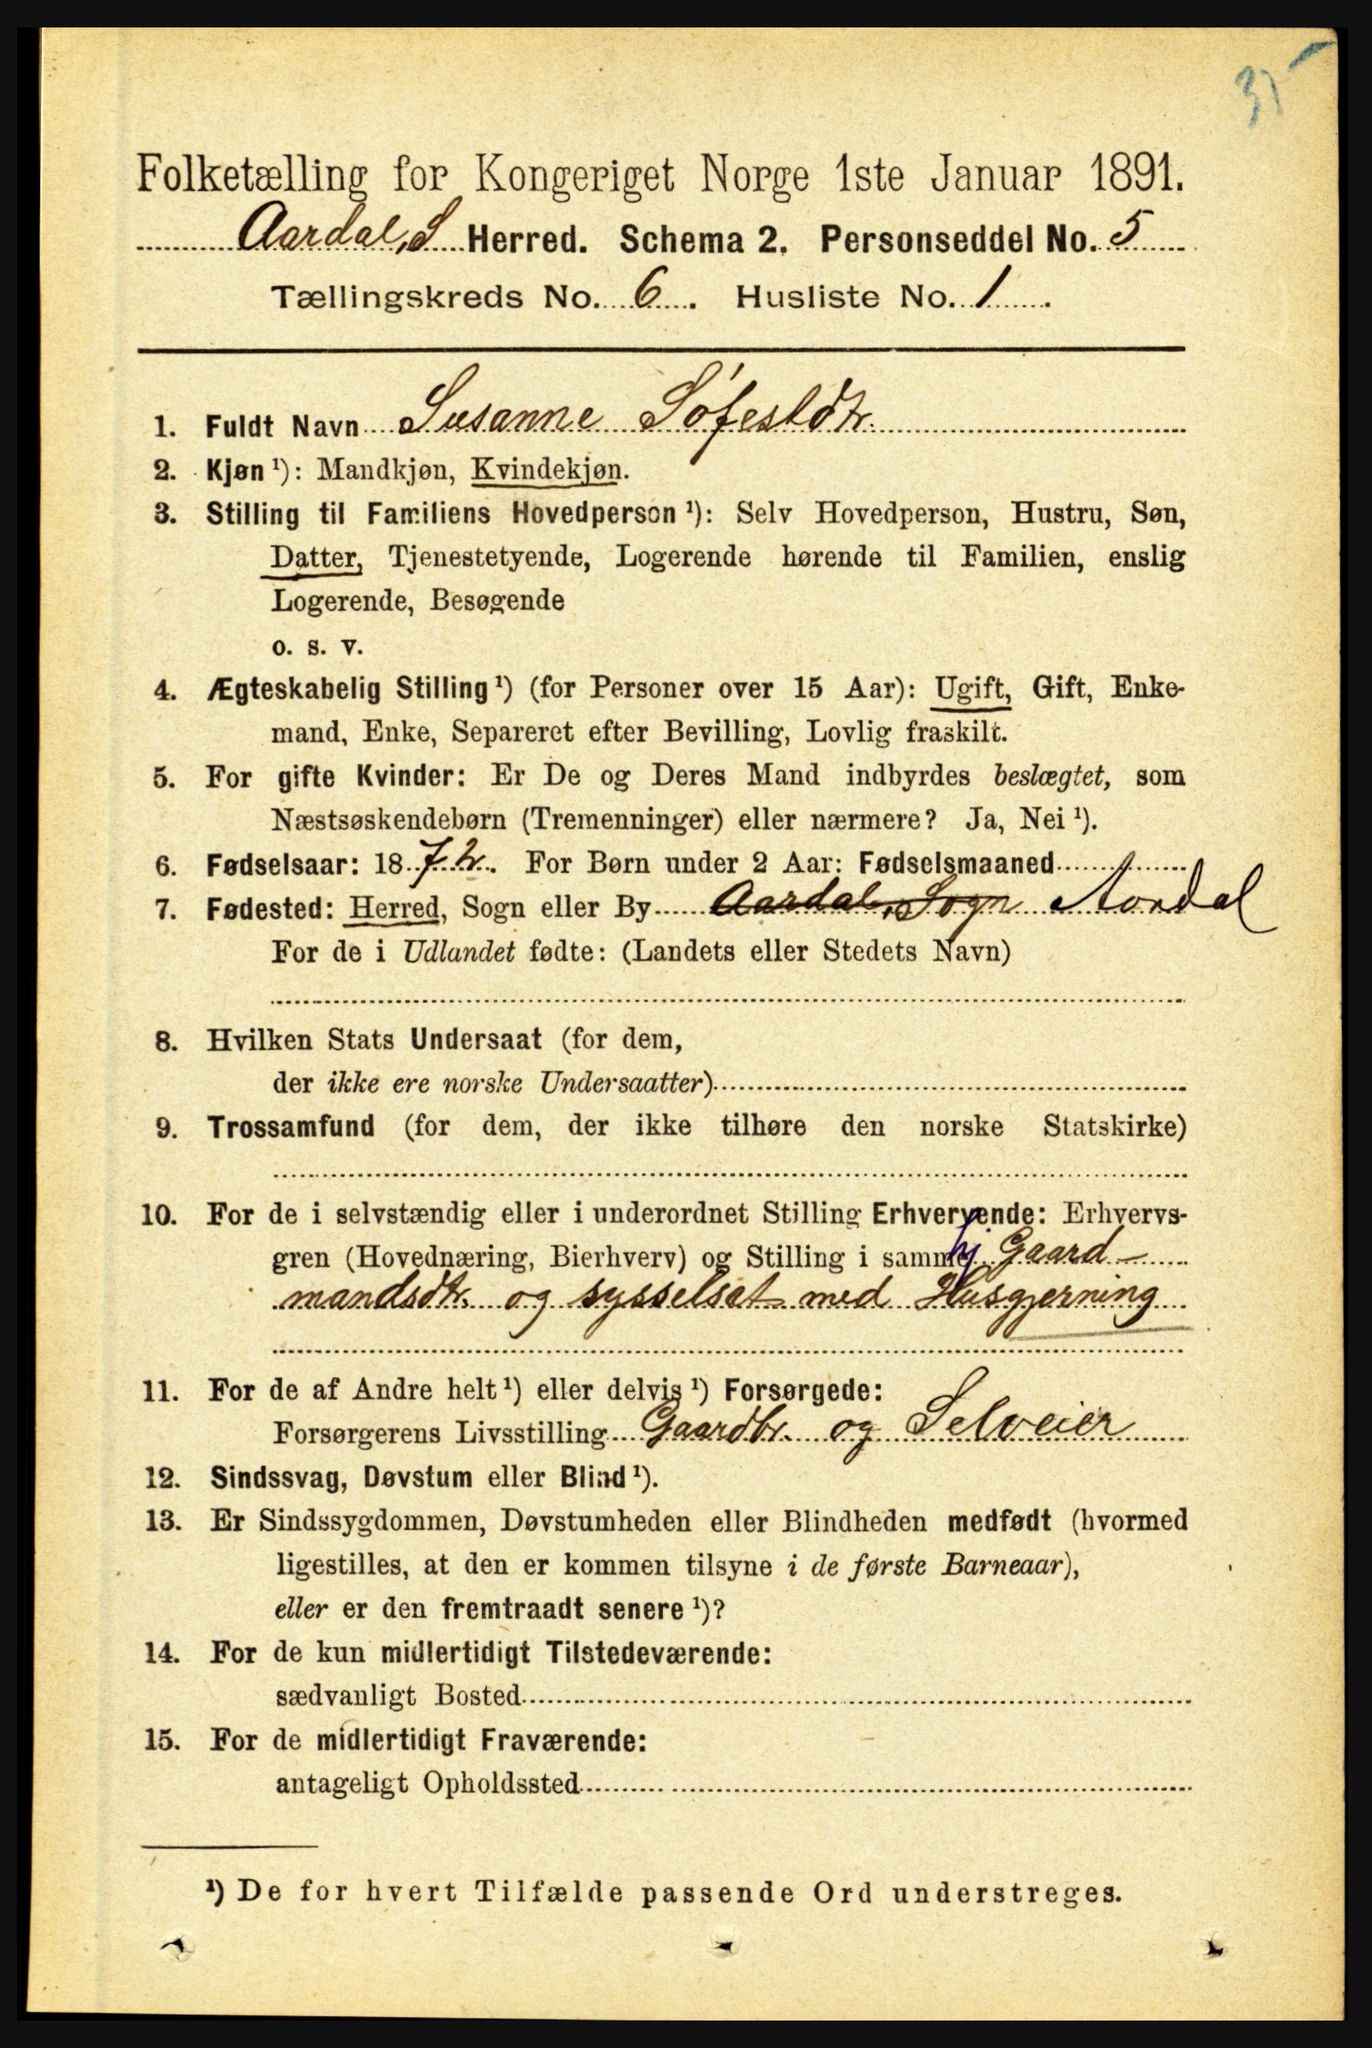 35
Folketælling for Kongeriget Norge 1ste Januar 1891.
Aardal, S Herred. Schema 2. Personseddel No. 5
Tællingskreds No. 6. Husliste No. 1.
1. Fuldt Navn Susanne Søfestdtr.
2. Kjøn ¹): Mandkjøn, Kvindekjøn.
3. Stilling til Familiens Hovedperson ¹): Selv Hovedperson, Hustru, Søn,
Datter, Tjenestetyende, Logerende hørende til Familien, enslig
Logerende, Besøgende
o. s. v.
4. Ægteskabelig Stilling ¹) (for Personer over 15 Aar): Ugift, Gift, Enke-
mand, Enke, Separeret efter Bevilling, Lovlig fraskilt.
5. For gifte Kvinder: Er De og Deres Mand indbyrdes beslægtet, som
Næstsøskendebørn (Tremenninger) eller nærmere? Ja, Nei ¹).
6. Fødselsaar: 1872. For Børn under 2 Aar: Fødselsmaaned
7. Fødested: Herred, Sogn eller By Aardal, Sogn Aardal
For de i Udlandet fødte: (Landets eller Stedets Navn)
8. Hvilken Stats Undersaat (for dem,
der ikke ere norske Undersaatter)
9. Trossamfund (for dem, der ikke tilhøre den norske Statskirke)
10. For de i selvstændig eller i underordnet Stilling Erhvervende: Erhvervs-
gren (Hovednæring, Bierhverv) og Stilling i samme hj Gaard-
mandsdtr. og sysselsat med Husgjerning
11. For de af Andre helt ¹) eller delvis ¹) Forsørgede:
Forsørgerens Livsstilling Gaardbr. og Selveier
12. Sindssvag, Døvstum eller Blind ¹).
13. Er Sindssygdommen, Døvstumheden eller Blindheden medfødt (hvormed
ligestilles, at den er kommen tilsyne i de første Barneaar),
eller er den fremtraadt senere ¹)?
14. For de kun midlertidigt Tilstedeværende:
sædvanligt Bosted
15. For de midlertidigt Fraværende:
antageligt Opholdssted
¹) De for hvert Tilfælde passende Ord understreges.